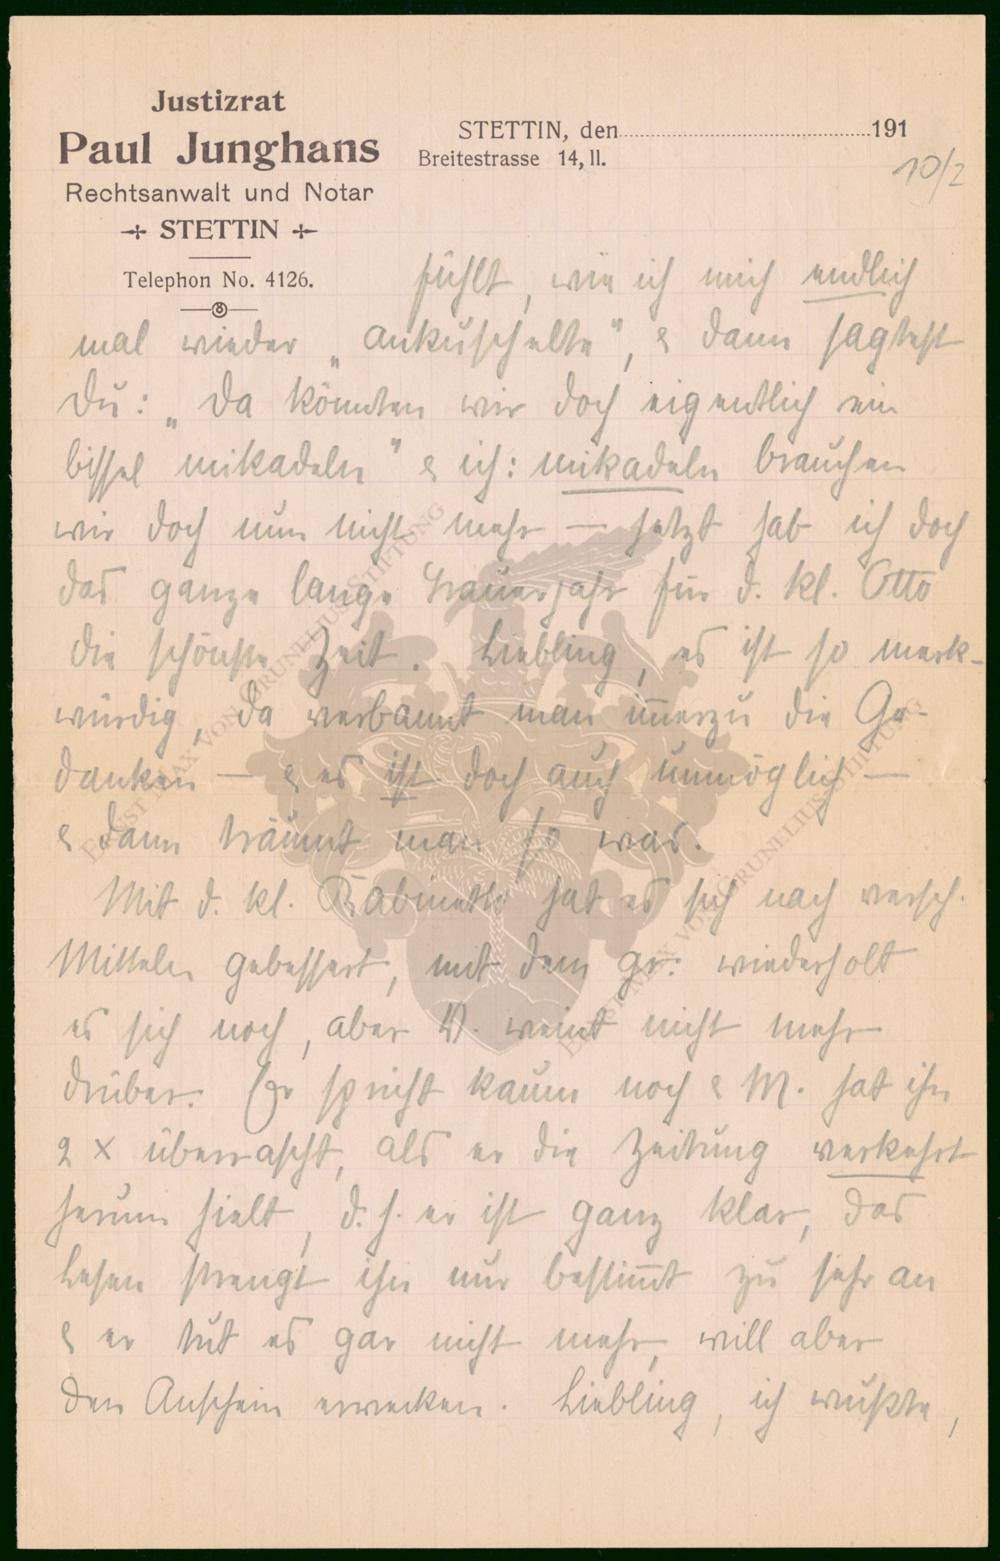 Justizrat
Paul Junghans
Rechtsanwalt und Notar
STETTIN
Telephon No. 4126.
STETTIN, den 191
Breitestrasse 14, II.
10/2
fühlt, wie ich mich endlich
mal wieder „ankuschelte", & dann sagtest
Du: „Da könnten wir doch eigentlich ein
bissel mikadeln" & ich: mikadeln brauchen
wir doch nun nicht mehr — jetzt hab ich doch
das ganze lange Trauerjahr für d. kl. Otto
die schönste Zeit. Liebling, es ist so merk-
würdig, da verbannt man immerzu die Ge-
danken — & es ist doch auch unmöglich —
& dann träumt man so was.
Mit d. kl. Kabinett hat es sich nach versch.
Mitteln gebessert, mit dem gr. wiederholt
es sich noch, aber V. weint nicht mehr
drüber. Er spricht kaum noch & M. hat ihn
2 x überrascht, als er die Zeitung verkehrt
herum hielt, d. h. er ist ganz klar, das
Lesen strengt ihn nur bestimmt zu sehr an
& er tut es gar nicht mehr, will aber
den Anschein erwecken. Liebling, ich wußte,
ERNST MAX VON GRUNELIUS-STIFTUNG
ERNST MAX VON GRUNELIUS-STIFTUNG